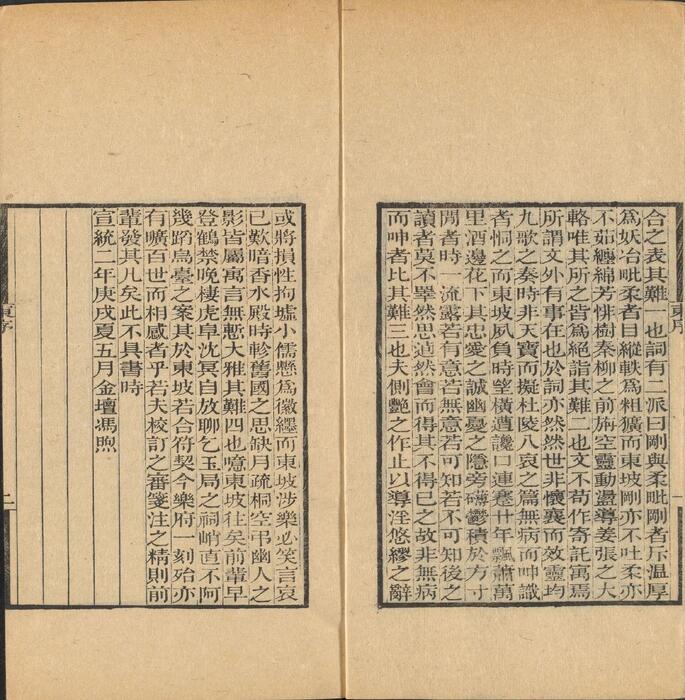 合之表其難一也詞有二派曰剛與柔毗剛者斥溫厚
為妖冶毗柔者目縱軼為粗獷而東坡剛亦不吐柔亦
不茹纏綿芳悱樹秦柳之前旃空靈動盪導姜張之大
輅唯其所之皆為絕詣其難二也文不苟作寄託寓焉
所謂文外有事在也於詞亦然然世非懷襄而效靈均
九歌之奏時非天寶而擬杜陵八哀之篇無病而呻識
者恫之而東坡夙負時望橫遭讒口連蹇廿年飄蕭萬
里酒邊花下其忠愛之誠幽憂之隱旁礴鬱積於方寸
閒者時一流露若有意若無意若可知若不可知後之
讀者莫不睪然思逌然會而得其不得已之故非無病
而呻者比其難三也夫側豔之作止以導淫悠繆之辭
或將損性拘墟小儒懸為徽纆而東坡涉樂必笑言哀
已歎暗香水殿時軫舊國之思缺月疏桐空弔幽人之
影皆屬寓言無慙大雅其難四也噫東坡往矣前輩早
登鶴禁晚棲虎阜沈冥自放聊乞玉局之祠峭直不阿
幾蹈烏臺之案其於東坡若合符契今樂府一刻殆亦
有曠百世而相感者乎若夫校訂之審箋注之精則前
輩發其凡矣此不具書時
宣統二年庚戌夏五月金壇馮煦
東序
一
東序
二